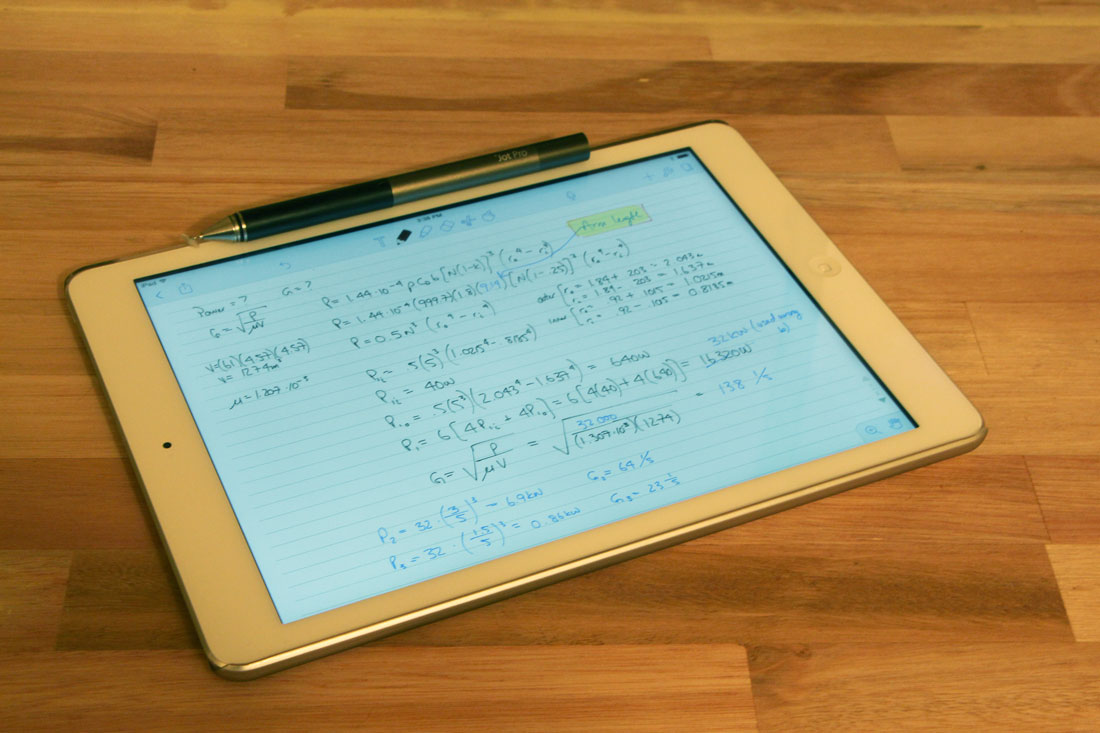 Jot Pro
Arm length
Power = ? G = ?
P = 1.44·10⁻⁴ ρ C_D b [N(1-k)]³ (r_o⁴ - r_i⁴)
P = 1.44·10⁻⁴ (999.7)(1.8) [N(1-.25)]³ (r_o⁴ - r_i⁴)
G = √(P/μV)
P = 0.5 n³ (r_o⁴ - r_i⁴)
outer [r_o = 1.84 + .203 = 2.043m
r_i = 1.84 - .203 = 1.637m
inner [r_o = .92 + .1015 = 1.0215m
r_i = .92 - .1015 = 0.8185m
V = (61)(4.57)(4.57)
V = 1274 m³
μ = 1.307·10⁻³
P_ii = .5(5)³ (1.025⁴ - .8185⁴)
P_ii = 40w
P_io = .5(5³)(2.043⁴ - 1.637⁴) = 640w
P_1 = 6[4P_ii + 4P_io] = 6[4(40) + 4(640)] = 16320w
32kw (used wrong b)
G = √(P/μV) = √(32,000/(1.307·10⁻³)(1274)) = 138 1/s
P_2 = 32·(3/5)³ - 6.9kw G_2 = 64 1/s
P_3 = 32·(1.5/5)³ = 0.86kw G_3 = 23 1/s